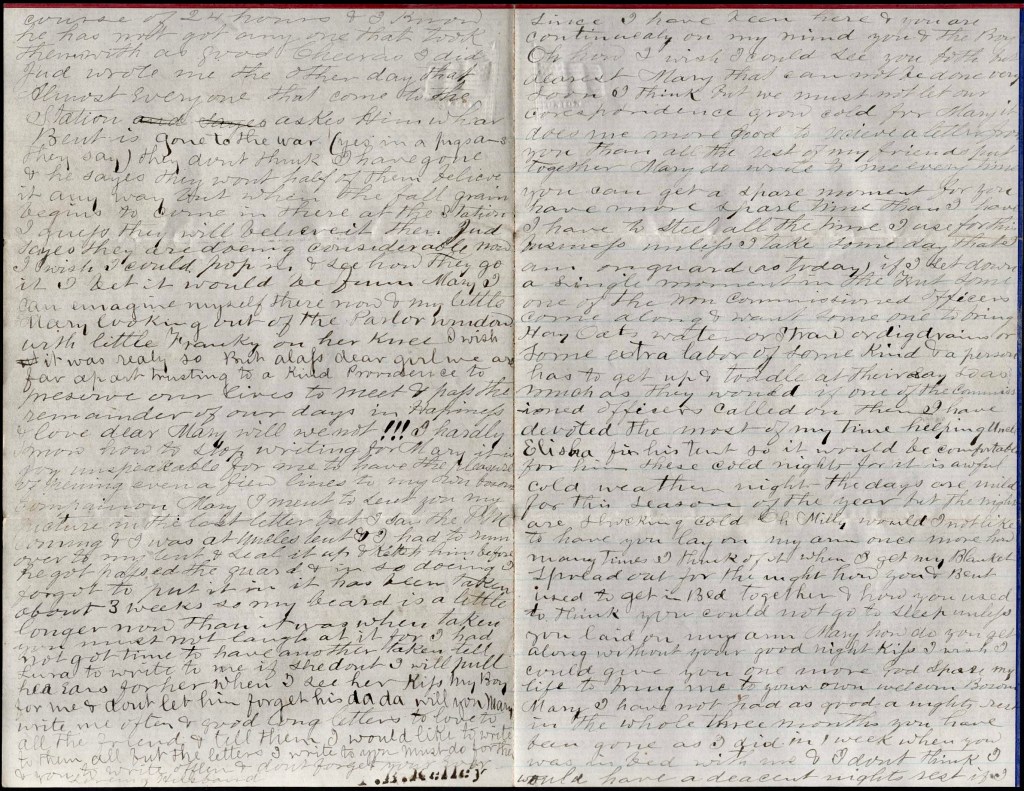 course of 24 hours & I know
he has not got any one that took
them with as good Cheer as I did
Jud wrote me the other day that
Almost Everyone that come to the
Station and sayes askes Him whar
Bent is gone to the war (yes in a
they say) they dont think I have gone
& he sayes they wont half of them believe
it any way but when the fall grain
begins to come in there at the Station
I guess they will believe it then Jud
sayes they are doeing considerable now
I wish I could pop in & see how they go
it I bet it would be funn Mary I
can emagine myself there now & my little
Mary looking out of the Parlor window
with little Franky on her Knee I wish
it was realy so But alass dear girl we are
far apart trusting to a Kind Providence to
preserve our lives to meet & pass the
remainder of our days in Happiness
& love dear Mary will we not !!! I hardly
know how to stop writing for Mary it is
unspeakable for me to have the pleasure
of pening even a few lines to my own bosom
companion Mary I ment to sent you my
picture in the last letter but I say the P M
coming & I was at Uncles tent & I had to run
over to my tent & seal it up & ketch him before
he got passed the guard & in so doeing I
forgot to put it in it has been taken
about 3 weeks so my beard is a little
longer now than it was when taken
you must not laugh at it for I had
not got time to have another taken tell
Lura to write to me if she dont I will pull
her Ears for her when I see her Kiss my Boy
for me & dont let him forget his dada will you Mary
write me often & good long letters to love to
all the friend & tell them I would like to write
to them all but the letters I write to you must do for them
& you write often & dont forget your ever
Kelley
since I have been here & you are
continualy on my mind you & the Boy
Oh how I wish I could see you both but
dearest Mary that can not be done very
soon I think But we must not let our
correspondence grow cold for Mary it
does me more good to recieve a letter from
you than all the rest of my friends put
together Mary do write to me every time
you can get a spare moment for you
have more spare time than I have
I have to steel all the time I use for this
business unless I take some day that I
am on guard (as today) if I set down
a single moment in the Tent some
one of the non commissioned Officers
come along & want some one to bring
Hay Oats water or Straw or dig drains or
some extra labor of some Kind & a person
has to get up & toddle at their say so as
much as they would if one of the commiss
ioned officers called on them I have
devoted the most of my time helping Uncle
Elisha fix his tent so it would be comfortable
for him these cold nights for it is awful
cold weather nights the days are mild
for this season of the year but the nights
are shocking cold Oh Milly would I not like
to have you lay on my arm once more how
many times I think of it when I get my Blanket
spread out for the night how you & Bent
used to get in Bed together & how you used
to think you could not go to sleep unless
you laid on my arm Mary how do you get
along without your good night Kiss I wish I
could give you one more God spare my
life to bring me to your own welcom Bosom
Mary I have not had as good a nights rest
in the whole three months you have
ben gone as I did in 1 week when you
was in bed with me & I dont think I
would have a deacent nights rest if I